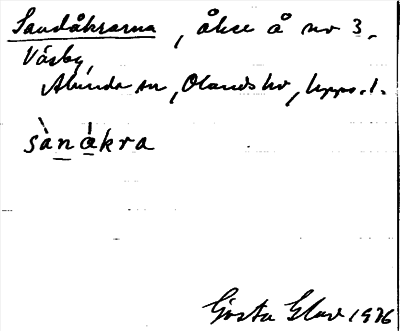 Sandåkrarna, åker å nr 3,
Väsby,
Alunda sn, Olands hd, Upps. l.
sànákra
Gösta Glad 1976